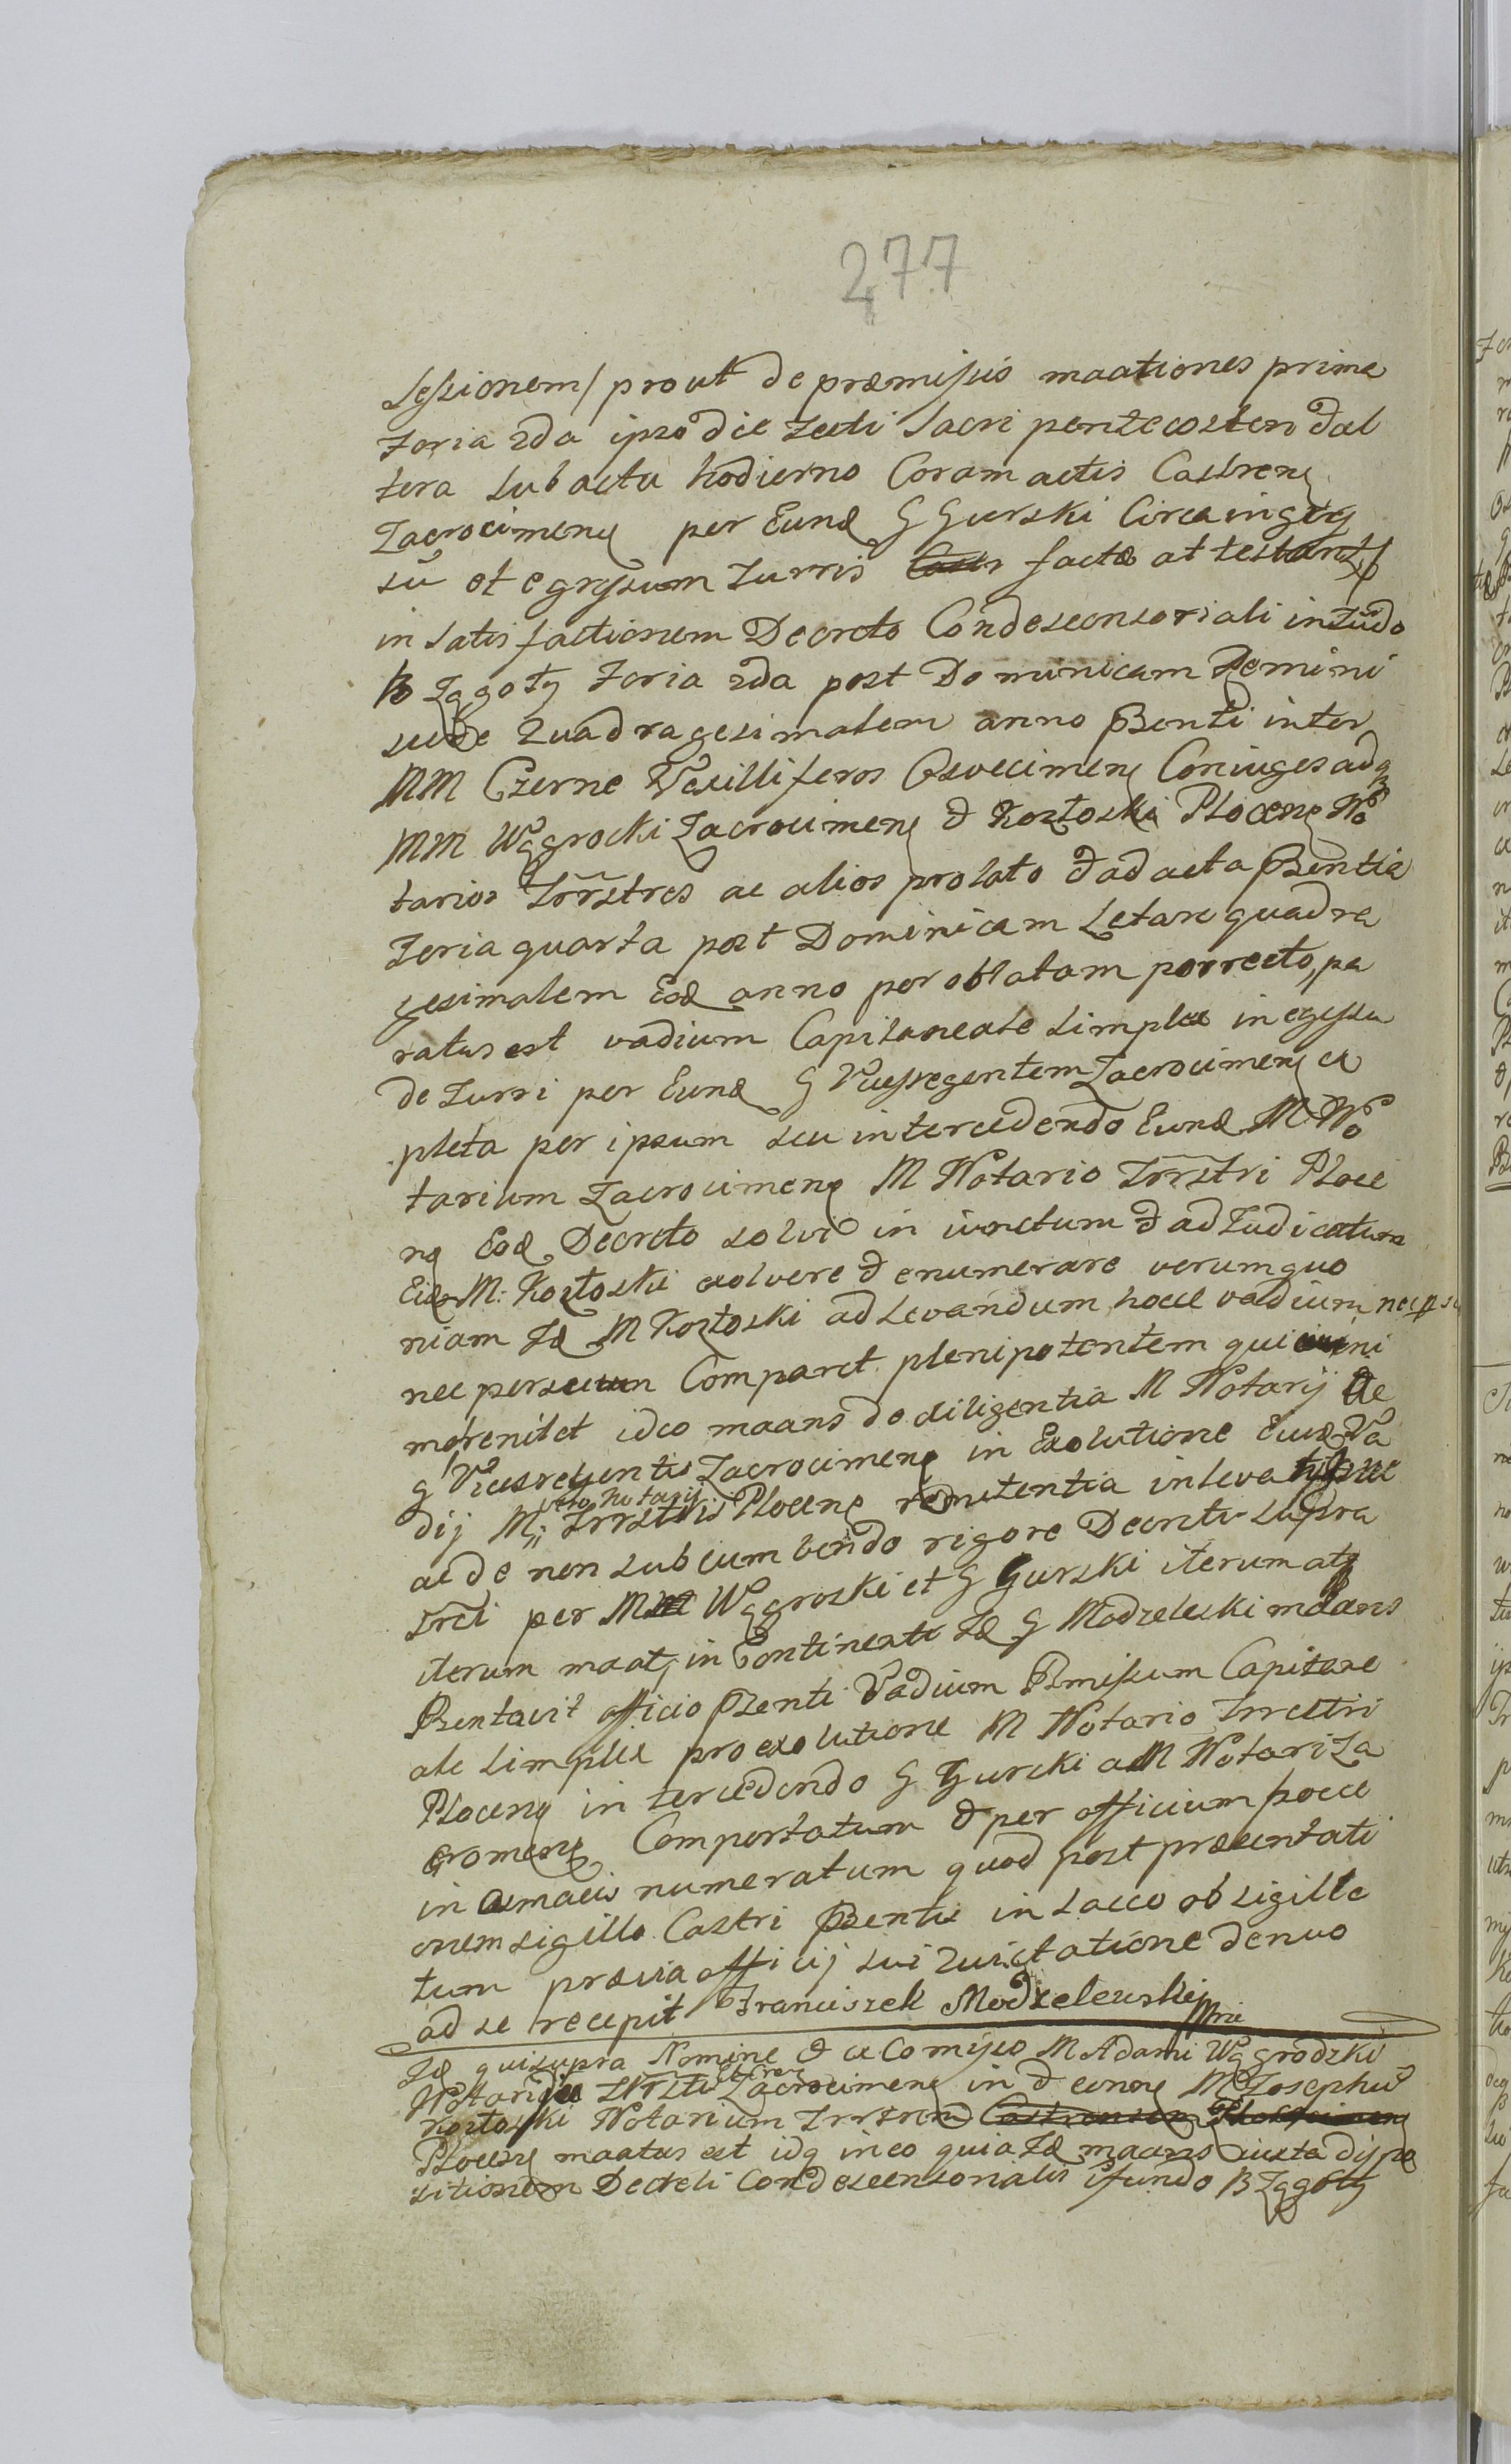 277
sessionem / prout de præmissis maationes prima
feria 2da ipso die festi Sacri pentecosten & al
tera sub actu hodierno Coram actis Castren
Zacrocimen per Eund G Gurski Circa ingres
sũ et egressum turris factæ attestant
in satis factionem Decreto Condescensoriali in fũdo
B Zggoty feria 2da post Dominicam Remini
scere Quadragesimalem anno Psenti inter
MM Czerne Vexilliferos Osvecimen Coniuges adq
MM Wggrocki Zacrocimen & Kozłoski Plocen No
tarios Trrstres ac alios prolato & ad acta Psentia
feria quarta post Dominicam Letare quadra
gesimalem Eod anno per oblatam porrecto, pa
ratus est vadium Capitaneale simplex in egressu
de turri per Eund G Vicesregentem Zacrocimen ex
pleta per ipsum seu intercedendo Eund M No
tarium Zacrocimen M Notario Trrstri Ploce
n Eod Decreto solvi in iunctum & adiudicatum
Eid M: Kozłoski exolvere & enumerare verum quo
niam Id M Kozłoski ad levandum hocce vadium nec p se
nec per suum Comparet plenipotentem qui
 ideo maans de diligentia M Notarij &
G Vicesregentis Zacrocimen in Exolutione Eiusd Va
dij M: vero Notarij Trrstris Plocen renitentia in levatione
ac de non subcumbendo rigore Decreti supra
srcti per M Wggroski et G Gurski iterum atq
iterum maat, in Continenti Id G Modzeleski maans
Psentavit officio Psenti Vadium Pmissum Capitane
ale simplex pro exolutione M Notario Trrestri
Plocen intercedendo G Gurski a M Notari Za
cromen Comportatum & per officium hocce
in numeratum quod post præsentati
onem sigillo Castri Psentis in sacco obsigilla
tum prævia officij sui Quietatione denuo
ad se recepit Franciszek Modzelewski mp
Id qui supra Nomine & ex Comisso M Adami Wggrodzki
Notarij Trrstris Zacrocimen in & conon M Josephũ
Kozłoski Notarium Trrstrem Castrensem
Plocen maatus est idq in eo quia Id maans iuxta dispo
sitionem Decreti Condescensorialis ĩ fundo B Zggoty